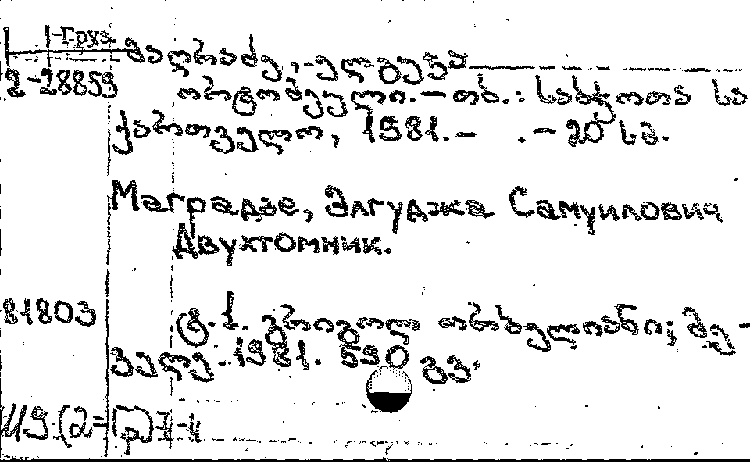 Груз.
2-28859
მაღრაძე, ელგუჯა
ორტომეული. — თბ.: საბჭოთა სა
ქართველო, 1981. — . — 20 სმ.
Маградзе, Элгуджа Самуилович
Двухтомник.
81803
ტ. 1. გრიგოლ ორბელიანი; მე-
ფე. 1981. 590 გვ.